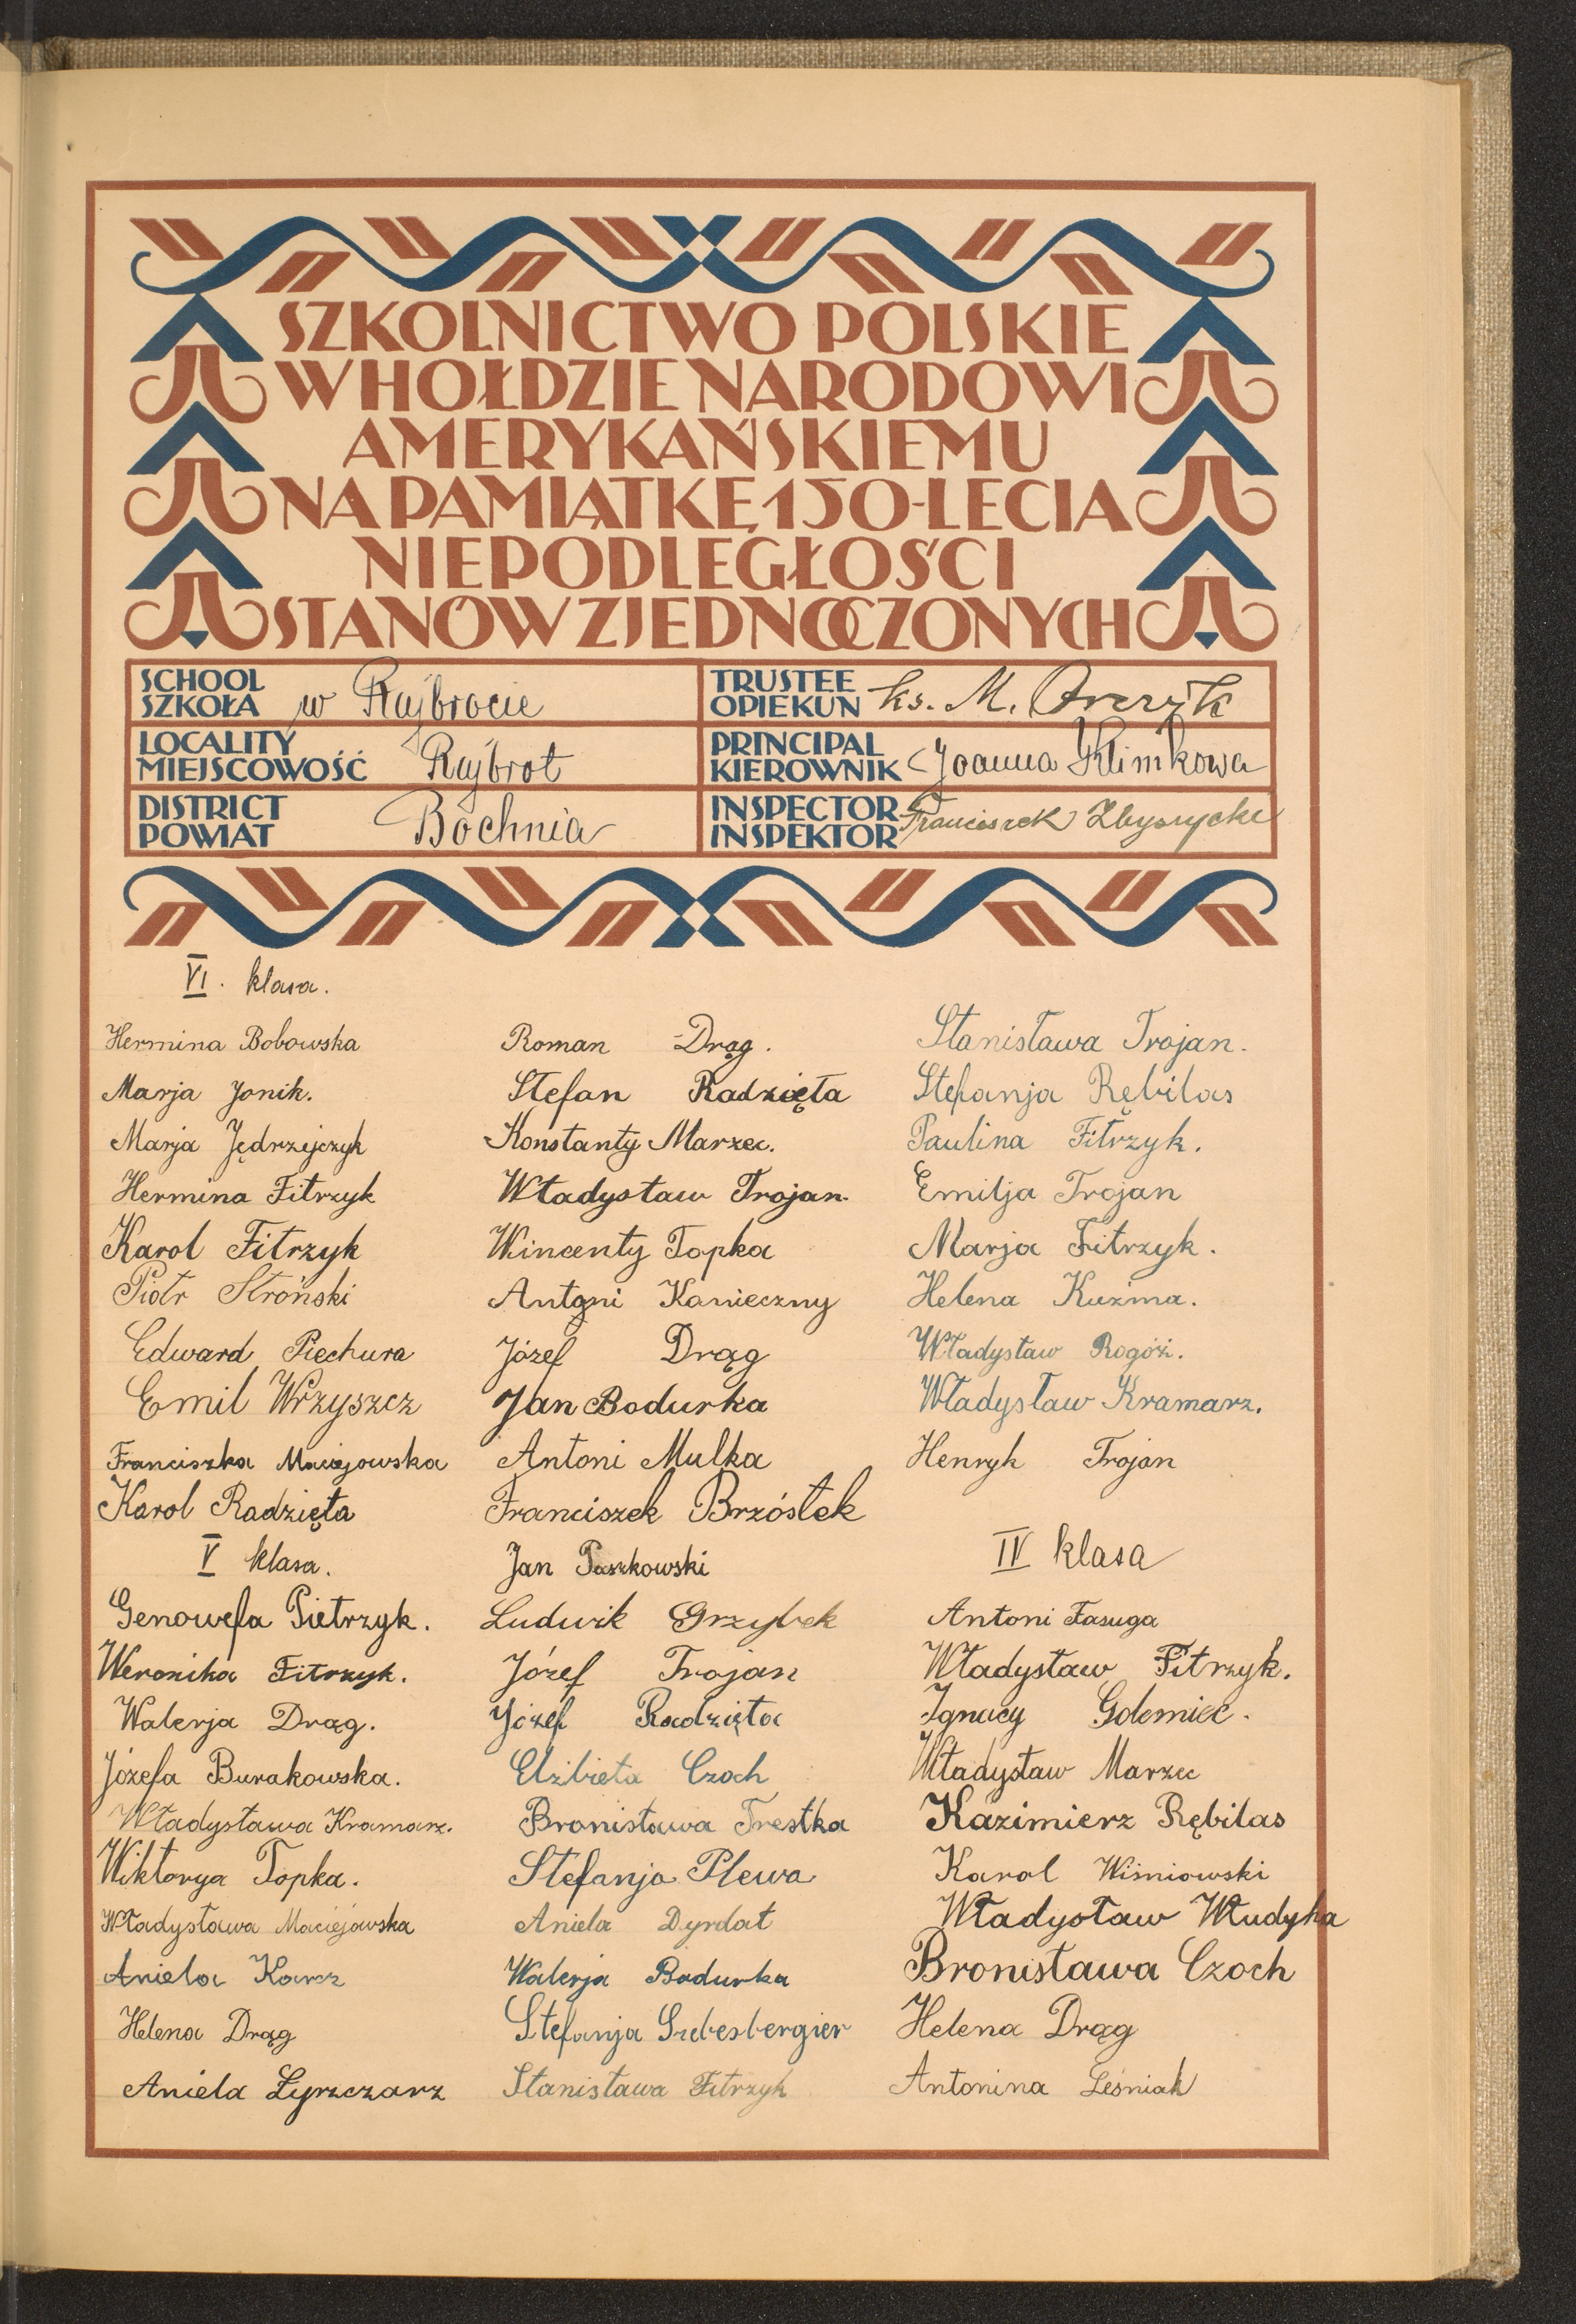 SZKOLNICTWO POLSKIE
W HOŁDZIE NARODOWI
AMERYKAŃSKIEMU
NA PAMIĄTKĘ 150-LECIA
NIEPODLEGŁOŚCI
STANÓW ZJEDNOCZONYCH
SCHOOL
SZKOŁA w Rajbrocie
TRUSTEE
OPIEKUN ks. M.
LOCALITY
MIEJSCOWOŚĆ Rajbrot
PRINCIPAL
KIEROWNIK Joanna Klimkowa
DISTRICT
POWIAT Bochnia
INSPECTOR
INSPEKTOR Franciszek
VI. klasa.
Hermina Bobowska
Marja Jonik.
Marja Jędrzejczyk
Hermina Fitrzyk
Karol Fitrzyk
Piotr Stroński
Edward Piechura
Emil Wrzyszcz
Franciszka Maciejowska
Karol Radzięta
V klasa.
Genowefa Pietrzyk.
Weronika Fitrzyk.
Walerja Drąg.
Józefa Burakowska.
Władysława Kramarz.
Wiktorya Topka.
Władysława Maciejowska
Aniela Karcz
Helena Drąg
Aniela Łyrzczarz
Roman Drąg.
Stefan Radzięta
Konstanty Marzec.
Władysław Trojan.
Wincenty Topka
Antoni Konieczny
Józef Drąg
Jan Bodurka
Antoni Mulka
Franciszek Brzóstek
Jan Paszkowski
Ludwik Grzybek
Józef Trojan
Józef Radzięta
Elżbieta Czoch
Bronisława Trestka
Stefanja Plewa
Aniela Dyrdat
Walerja Bodurka
Stefanja
Stanisława Fitrzyk
Stanisława Trojan.
Stefanja Rębilas
Paulina Fitrzyk.
Emilja Trojan
Marja Fitrzyk.
Helena Kuźma.
Władysław Rogóż.
Władysław Kramarz.
Henryk Trojan
IV klasa
Antoni Fasuga
Władysław Fitrzyk.
Ignacy Golemiec.
Władysław Marzec
Kazimierz Rębilas
Karol Wiśniowski
Władysław Włudyka
Bronisława Czoch
Helena Drąg
Antonina Leśniak